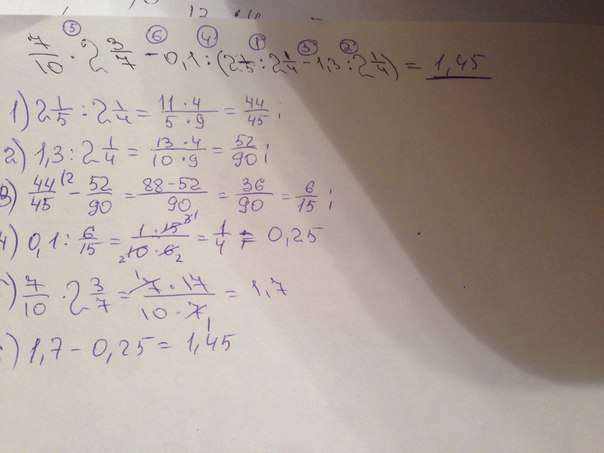 7/10 · 2 3/7 - 0,1 : (2 1/5 : 2 1/4 - 1,3 : 2 1/4) = 1,45
1) 2 1/5 : 2 1/4 = 11·4/5·9 = 44/45;
2) 1,3 : 2 1/4 = 13·4/10·9 = 52/90;
3) 44/45 - 52/90 = 88-52/90 = 36/90 = 6/15;
4) 0,1 : 6/15 = 1·15/10·6 = 1/4 = 0,25
7/10 · 2 3/7 = 7·17/10·7 = 1,7
) 1,7 - 0,25 = 1,45